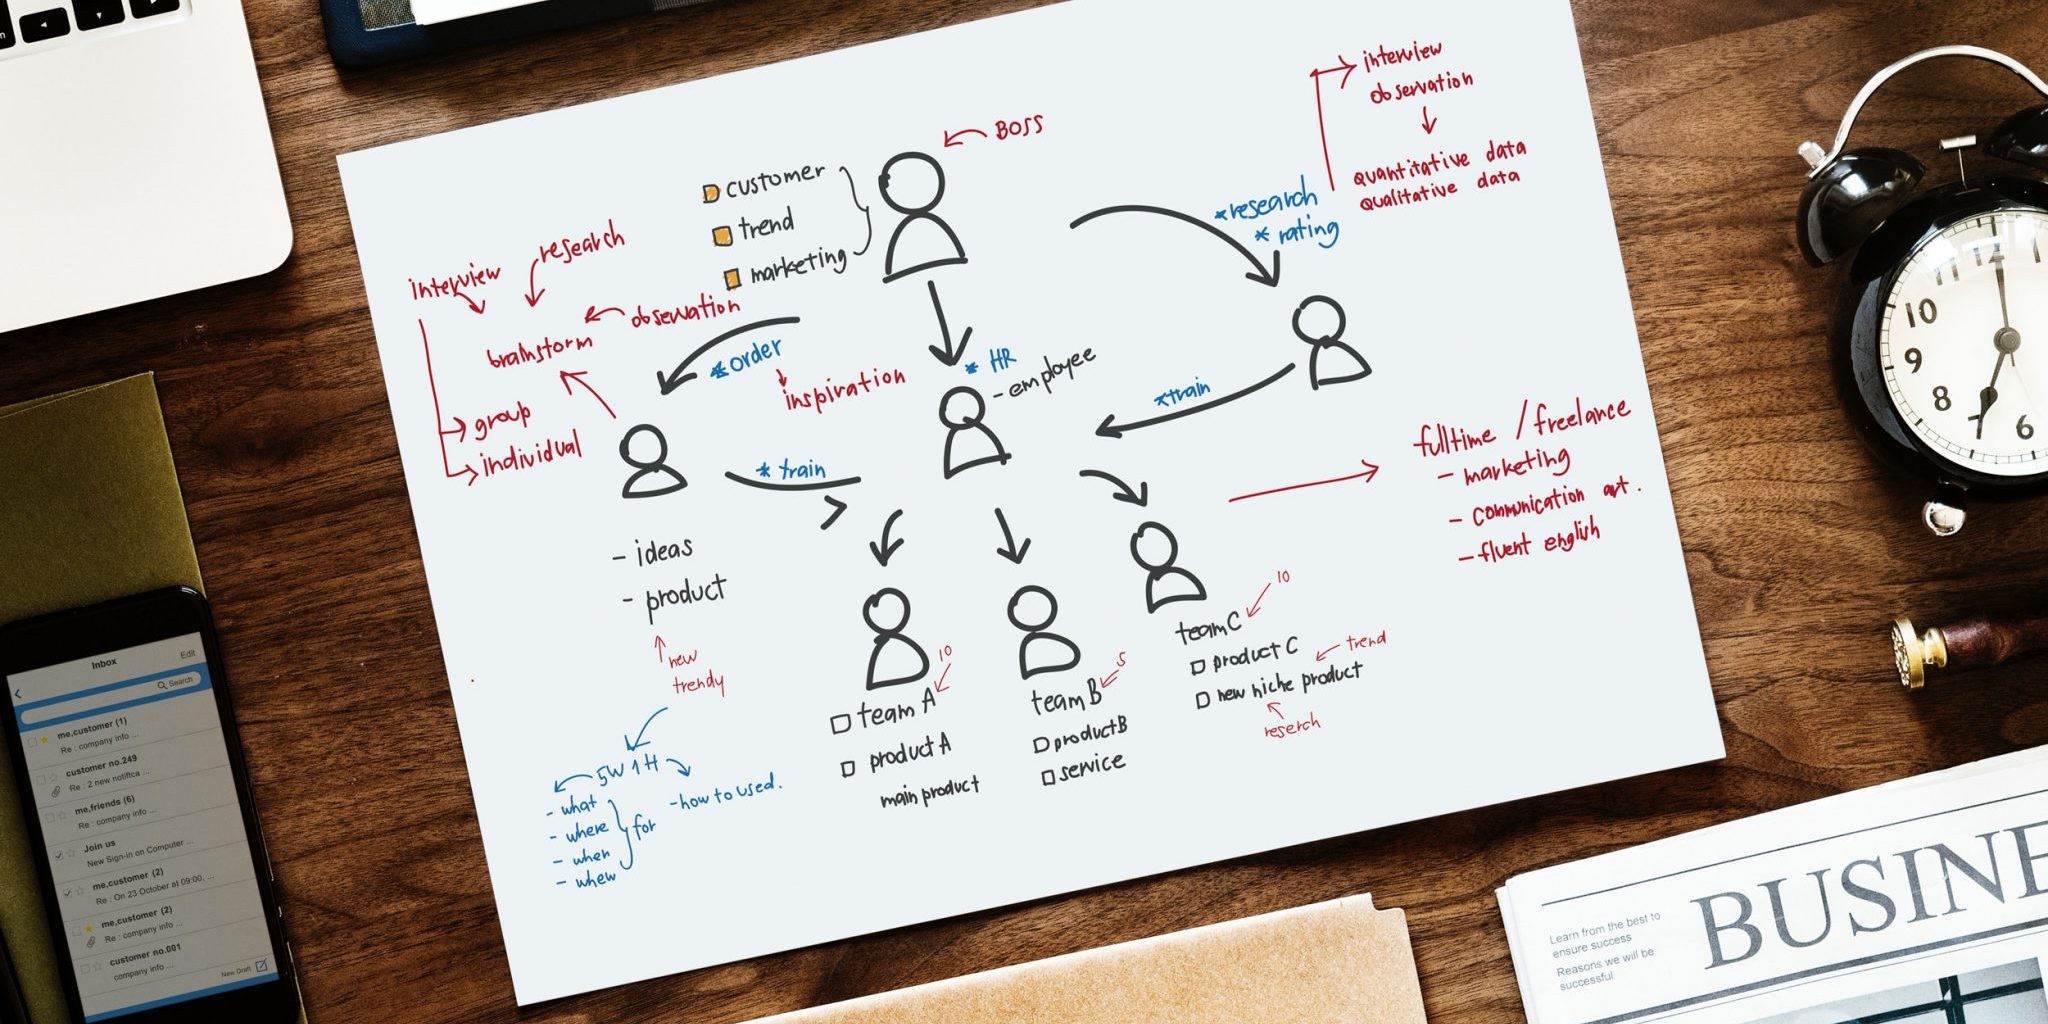 BOSS
customer
trend
marketing
interview
observation
quantitative data
qualitative data
*research
* rating
research
interview
observation
brainstorm
group
individual
*order
inspiration
* HR
- employee
*train
* train
- ideas
- product
new
trendy
5W 1H
- what
- where
- when
- whew
for
- how to used.
fulltime / freelance
- marketing
- communication art.
- fluent english
10
team A
product A
main product
5
team B
product B
service
10
team C
product C
trend
new niche product
reserch
Inbox
Edit
Search
me,customer (1)
Re : company info ...
customer no.249
Re : 2 new notifica ...
me,friends (6)
Re : company info ...
Join us
New Sign-in on Computer ...
me,customer (2)
Re : On 23 October at 09:00, ...
me,customer (2)
Re : company info ...
customer no.001
company info ...
New Draft
12
10
9
8
7
6
BUSINE
Learn from the best to
ensure success
Reasons we will be
successful